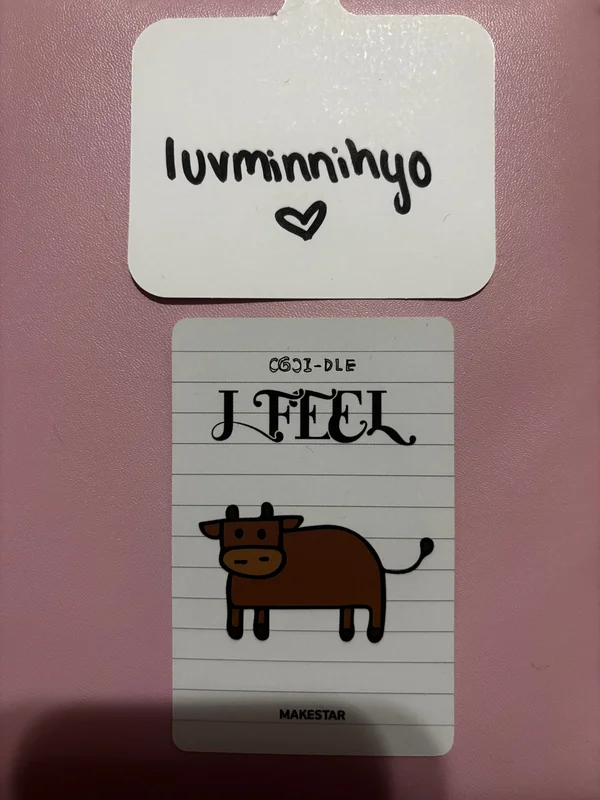 luvminnihyo
(G)I-DLE
I FEEL
MAKESTAR